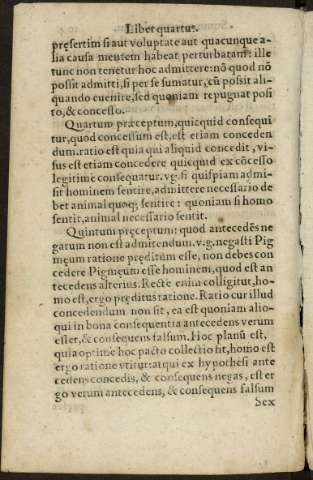 Liber quartus.
pręsertim si aut voluptate aut quacunque a-
lia causa mentem habeat perturbatam: ille
tunc non tenetur hoc admittere: nõ quod nõ
possit admitti, si per se sumatur, cũ possit ali-
quando euenire, sed quoniam repugnat posi
to, & concesso.
Quartum præceptum, quicquid consequi
tur, quod concessum est, est etiam conceden
dum. ratio est quia qui aliquid concedit, vi-
sus est etiam concedere quicquid ex cõcesso
legitime consequatur. vg. si quispiam admi-
sit hominem sentire, admittere necessario de
bet animal quoq; sentire: quoniam si homo
sentit, animal necessario sentit.
Quintum pręceptum: quod antecedẽs ne
gatum non est admitendum. v.g. negasti Pig
męum ratione pręditum esse, non debes con
cedere Pigmęum esse hominem, quod est an
tecedens alterius. Recte enim colligitur, ho-
mo est, ergo pręditus ratione. Ratio cur illud
concedendum non sit, ea est quoniam alio-
qui in bona consequentia antecedens verum
esset, & consequens falsum. Hoc planũ est,
quia optime hoc pacto collectio fit, homo est
ergo ratione vtitur: at qui ex hypothesi ante
cedens concedis, & consequens negas, est er
go verum antecedens, & consequens falsum
Sex